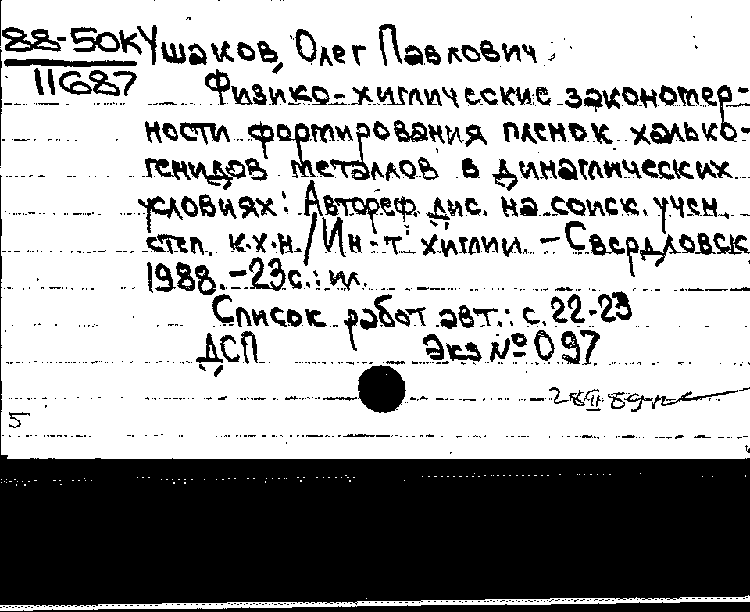 88-50К Ушаков, Олег Павлович.
11687 Физико-химические закономер-
ности формирования пленок халько-
генидов металлов в динамических
условиях: Автореф. дис. на соиск. учен.
степ. к.х.н./Ин-т химии. - Свердловск,
1988. - 23с.: ил.
Список работ авт.: с. 22-23
ДСП Экз № 097
28 II 89
5